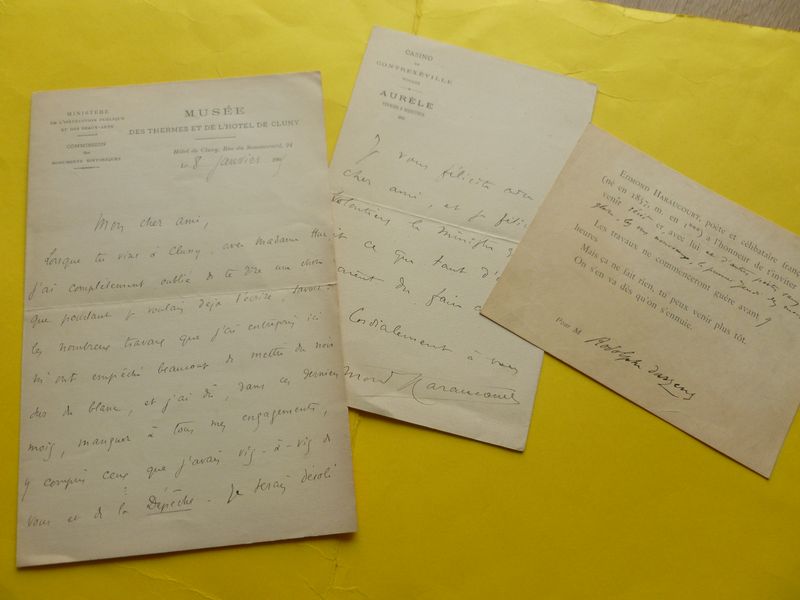 MINISTÈRE
DE L'INSTRUCTION PUBLIQUE
ET DES BEAUX-ARTS
COMMISSION
DES
MONUMENTS HISTORIQUES
MUSÉE
DES THERMES ET DE L'HÔTEL DE CLUNY
Hôtel de Cluny, Rue du Sommerard, 24
Le 8 Janvier
Mon cher ami,
Lorsque tu vins à Cluny, avec Madame
j'ai complètement oublié de te dire une chose
que pourtant je voulais déjà t'écrire.
les nombreux travaux que j'ai entrepris ici
m'ont empêché beaucoup de mettre du noir
sur du blanc, et j'ai dû, dans ces derniers
mois, manquer à tous mes engagements,
y compris ceux que j'avais vis-à-vis de
vous et de la Dépêche. Je serais désolé
CASINO
DE
CONTREXÉVILLE
VOSGES
AURÈLE
Je vous félicite mon
cher ami, et je félicite
volontiers le Ministre
ce que tant d'
du faire
Cordialement à vous
Haraucourt
EDMOND HARAUCOURT, poète et célibataire
(né en 1857, m. en ) a l'honneur de t'inviter
venir et avec lui et d'autres
heures
Les travaux ne commenceront guère avant 9
Mais ça ne fait rien, tu peux venir plus tôt.
On s'en va dès qu'on s'ennuie.
Pour M Rodolphe Darzens